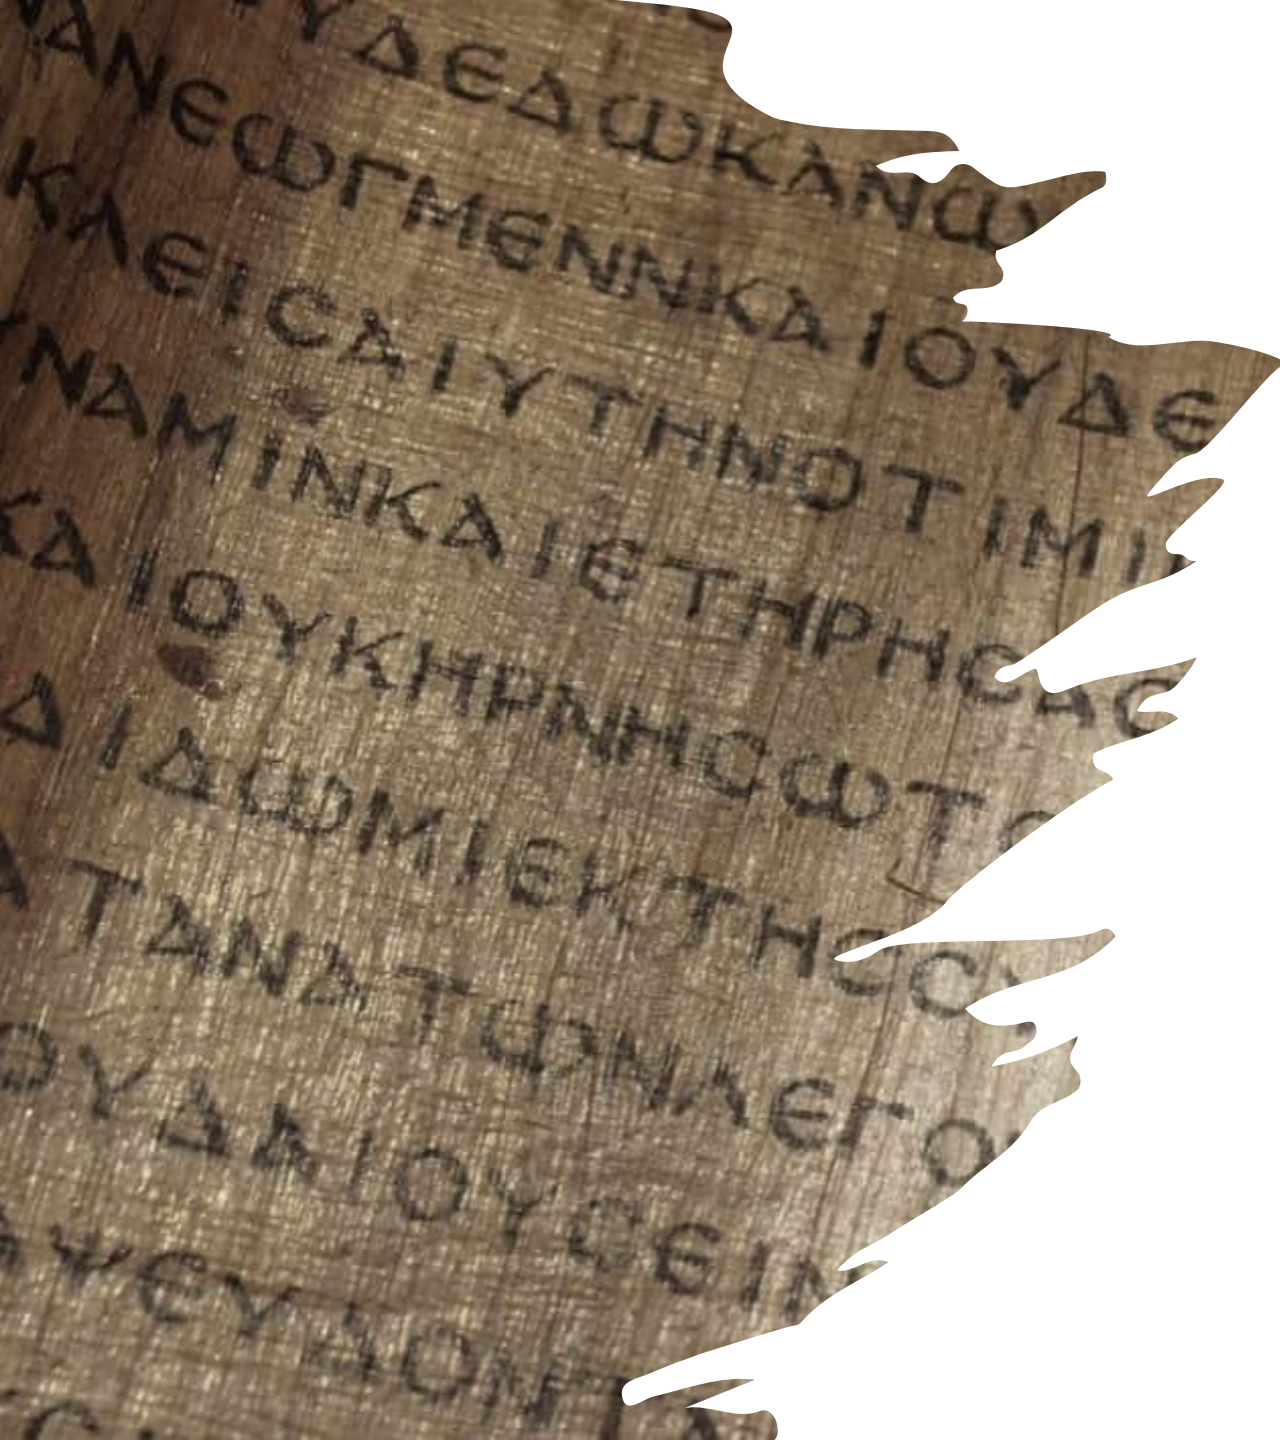 ΥΔΕΔΩΚΑΝΩ
ΑΝΕΩΓΜΕΝΝΚΑΙΟΥΔΕ
ΚΛΕΙCΑΙΥΤΗΝΟΤΙΜΙ
ΥΝΑΜΪΝΚΑΙΕΤΗΡΗCΑC
ΚΑΙΟΥΚΗΡΝΗCΩΤΟ
ΔΙΔΩΜΙΕΚΤΗCCΥ
ΑΤΑΝΑΤΩΝΛΕΓΟ
ΟΥΔΑΙΟΥCΕΙΝ
ΑΨΕΥΔΟΝΤΑ